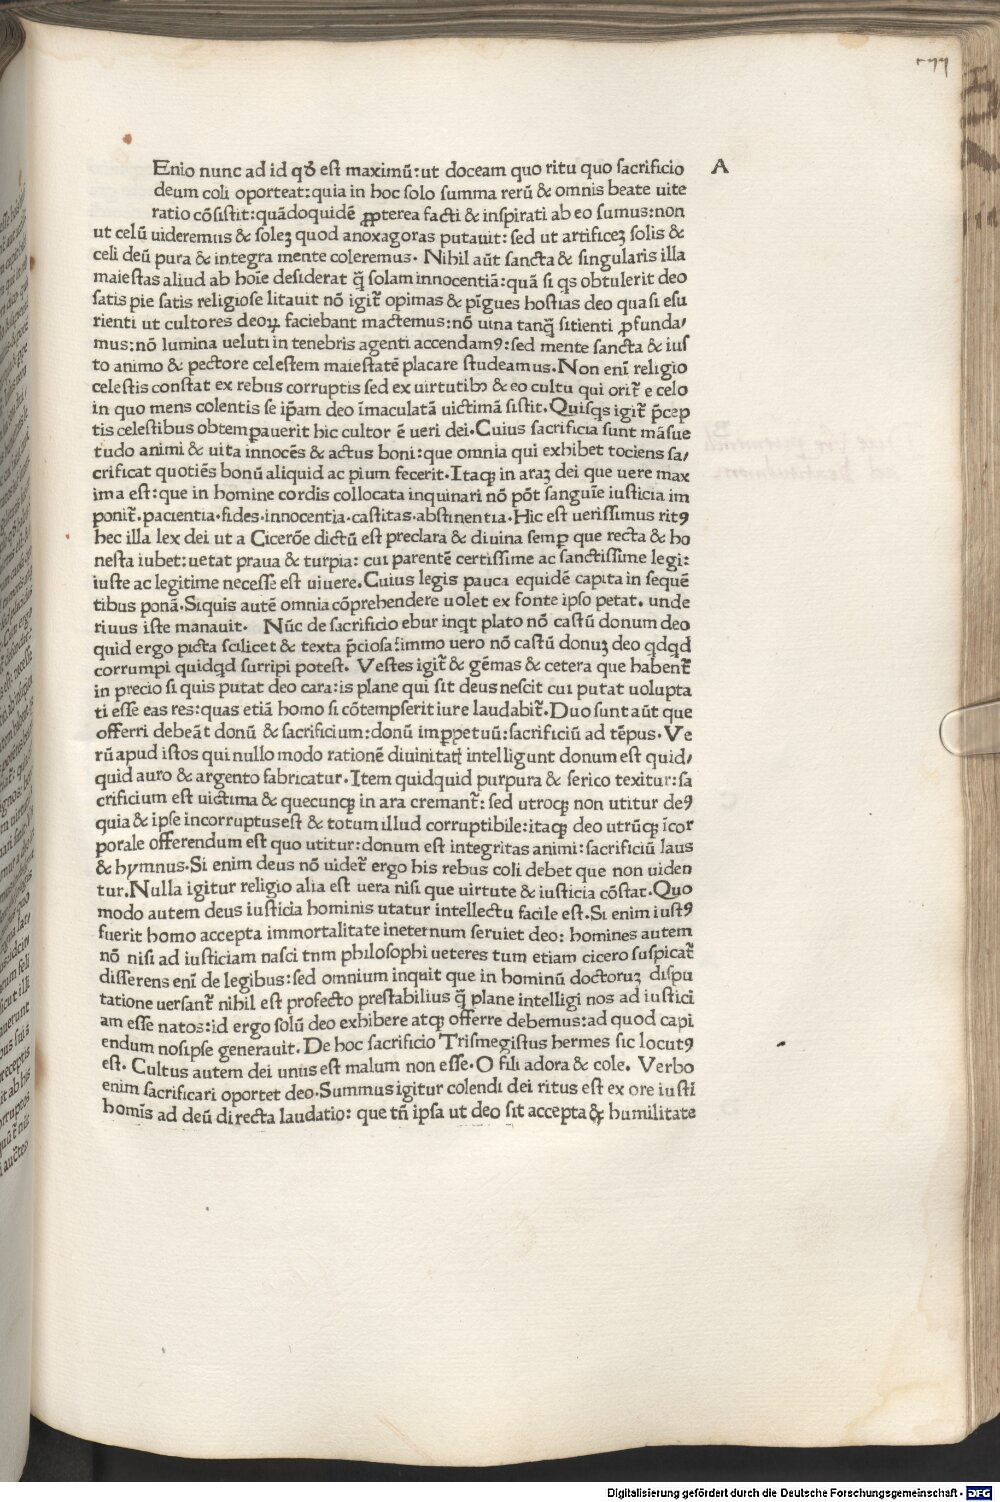 Enio nunc ad id qď est maximū:ut doceam quo ritu quo sacrificio A
deum coli oporteat:quia in hoc solo summa rerū & omnis beate uite
ratio cōsistit:quādoquidē ꝓpterea facti & inspirati ab eo sumus:non
ut celū uideremus & soleʒ quod anoxagoras putauit: sed ut artificeʒ solis &
celi deū pura & integra mente coleremus. Nihil aūt sancta & singularis illa
maiestas aliud ab hoīe desiderat q̄̄ solam innocentiā:quā si qs obtulerit deo
satis pie satis religiose litauit nō igit̄ opimas & pīgues hostias deo quasi esu
rienti ut cultores deoꝝ faciebant mactemus:nō uina tanq̄̄ sitienti ꝓfunda/
mus:nō lumina ueluti in tenebris agenti accendamꝰ:sed mente sancta & ius
to animo & pectore celestem maiestatē placare studeamus. Non eni religio
celestis constat ex rebus corruptis sed ex uirtutibꝫ & eo cultu qui orit̄ e celo
in quo mens colentis se ip̄am deo īmaculatā uictimā sistit. Quisqs igit̄ p̄cep
tis celestibus obtemꝑauerit hic cultor ē ueri dei. Cuius sacrificia sunt māsue
tudo animi & uita innocēs & actus boni:que omnia qui exhibet tociens sa/
crificat quotiēs bonū aliquid ac pium fecerit. Itaqꝫ in araʒ dei que uere max
ima est:que in homine cordis collocata inquinari nō pōt sanguīe iusticia im
ponit̄. pacientia. fides. innocentia. castitas. abstinentia. Hic est uerissimus ritꝰ
hec illa lex dei ut a Cicerōe dictū est preclara & diuina semꝑ que recta & ho
nesta iubet: uetat praua & turpia: cui parentē certissime ac sanctissime legi:
iuste ac legitime necesse est uiuere. Cuius legis pauca equidē capita in sequē
tibus ponā. Siquis autē omnia cōprehendere uolet ex fonte ipso petat. unde
riuus iste manauit. Nūc de sacrificio ebur inqt plato nō castū donum deo
quid ergo picta scilicet & texta p̄ciosa:immo uero nō castū donuʒ deo qdqd
corrumpi quidqd surripi potest. Vestes igit̄ & gēmas & cetera que habent̄
in precio si quis putat deo cara:is plane qui sit deus nescit cui putat uolupta
ti esse eas res:quas etiā homo si cōtempserit iure laudabit̄. Duo sunt aūt que
offerri debeāt donū & sacrificium:donū imꝑpetuū:sacrificiū ad tēpus. Ve
rū apud istos qui nullo modo rationē diuinitatꝭ intelligunt donum est quid/
quid auro & argento fabricatur. Item quidquid purpura & serico texitur:sa
crificium est uictima & quecunqꝫ in ara cremant̄: sed utroqꝫ non utitur deꝰ
quia & ipse incorruptusest & totum illud corruptibile:itaqꝫ deo utrūqꝫ īcor
porale offerendum est quo utitur:donum est integritas animi:sacrificiū laus
& hymnus. Si enim deus nō uidet̄ ergo his rebus coli debet que non uiden
tur. Nulla igitur religio alia est uera nisi que uirtute & iusticia cōstat. Quo
modo autem deus iusticia hominis utatur intellectu facile est. Si enim iustꝰ
fuerit homo accepta immortalitate ineternum seruiet deo: homines autem
nō nisi ad iusticiam nasci tnm philosophi ueteres tum etiam cicero suspicat̄
disserens enī de legibus:sed omnium inquit que in hominū doctoruʒ dispu
tatione uersant̄ nihil est profecto prestabilius q̄̄ plane intelligi nos ad iustici
am esse natos:id ergo solū deo exhibere atqꝫ offerre debemus:ad quod capi
endum nosipse generauit. De hoc sacrificio Trismegistus hermes sic locutꝰ
est. Cultus autem dei unus est malum non esse. O fili adora & cole. Verbo
enim sacrificari oportet deo. Summus igitur colendi dei ritus est ex ore iusti
homīs ad deū directa laudatio: que tn̄ ipsa ut deo sit accepta & humilitate
Digitalisierung gefördert durch die Deutsche Forschungsgemeinschaft - DFG